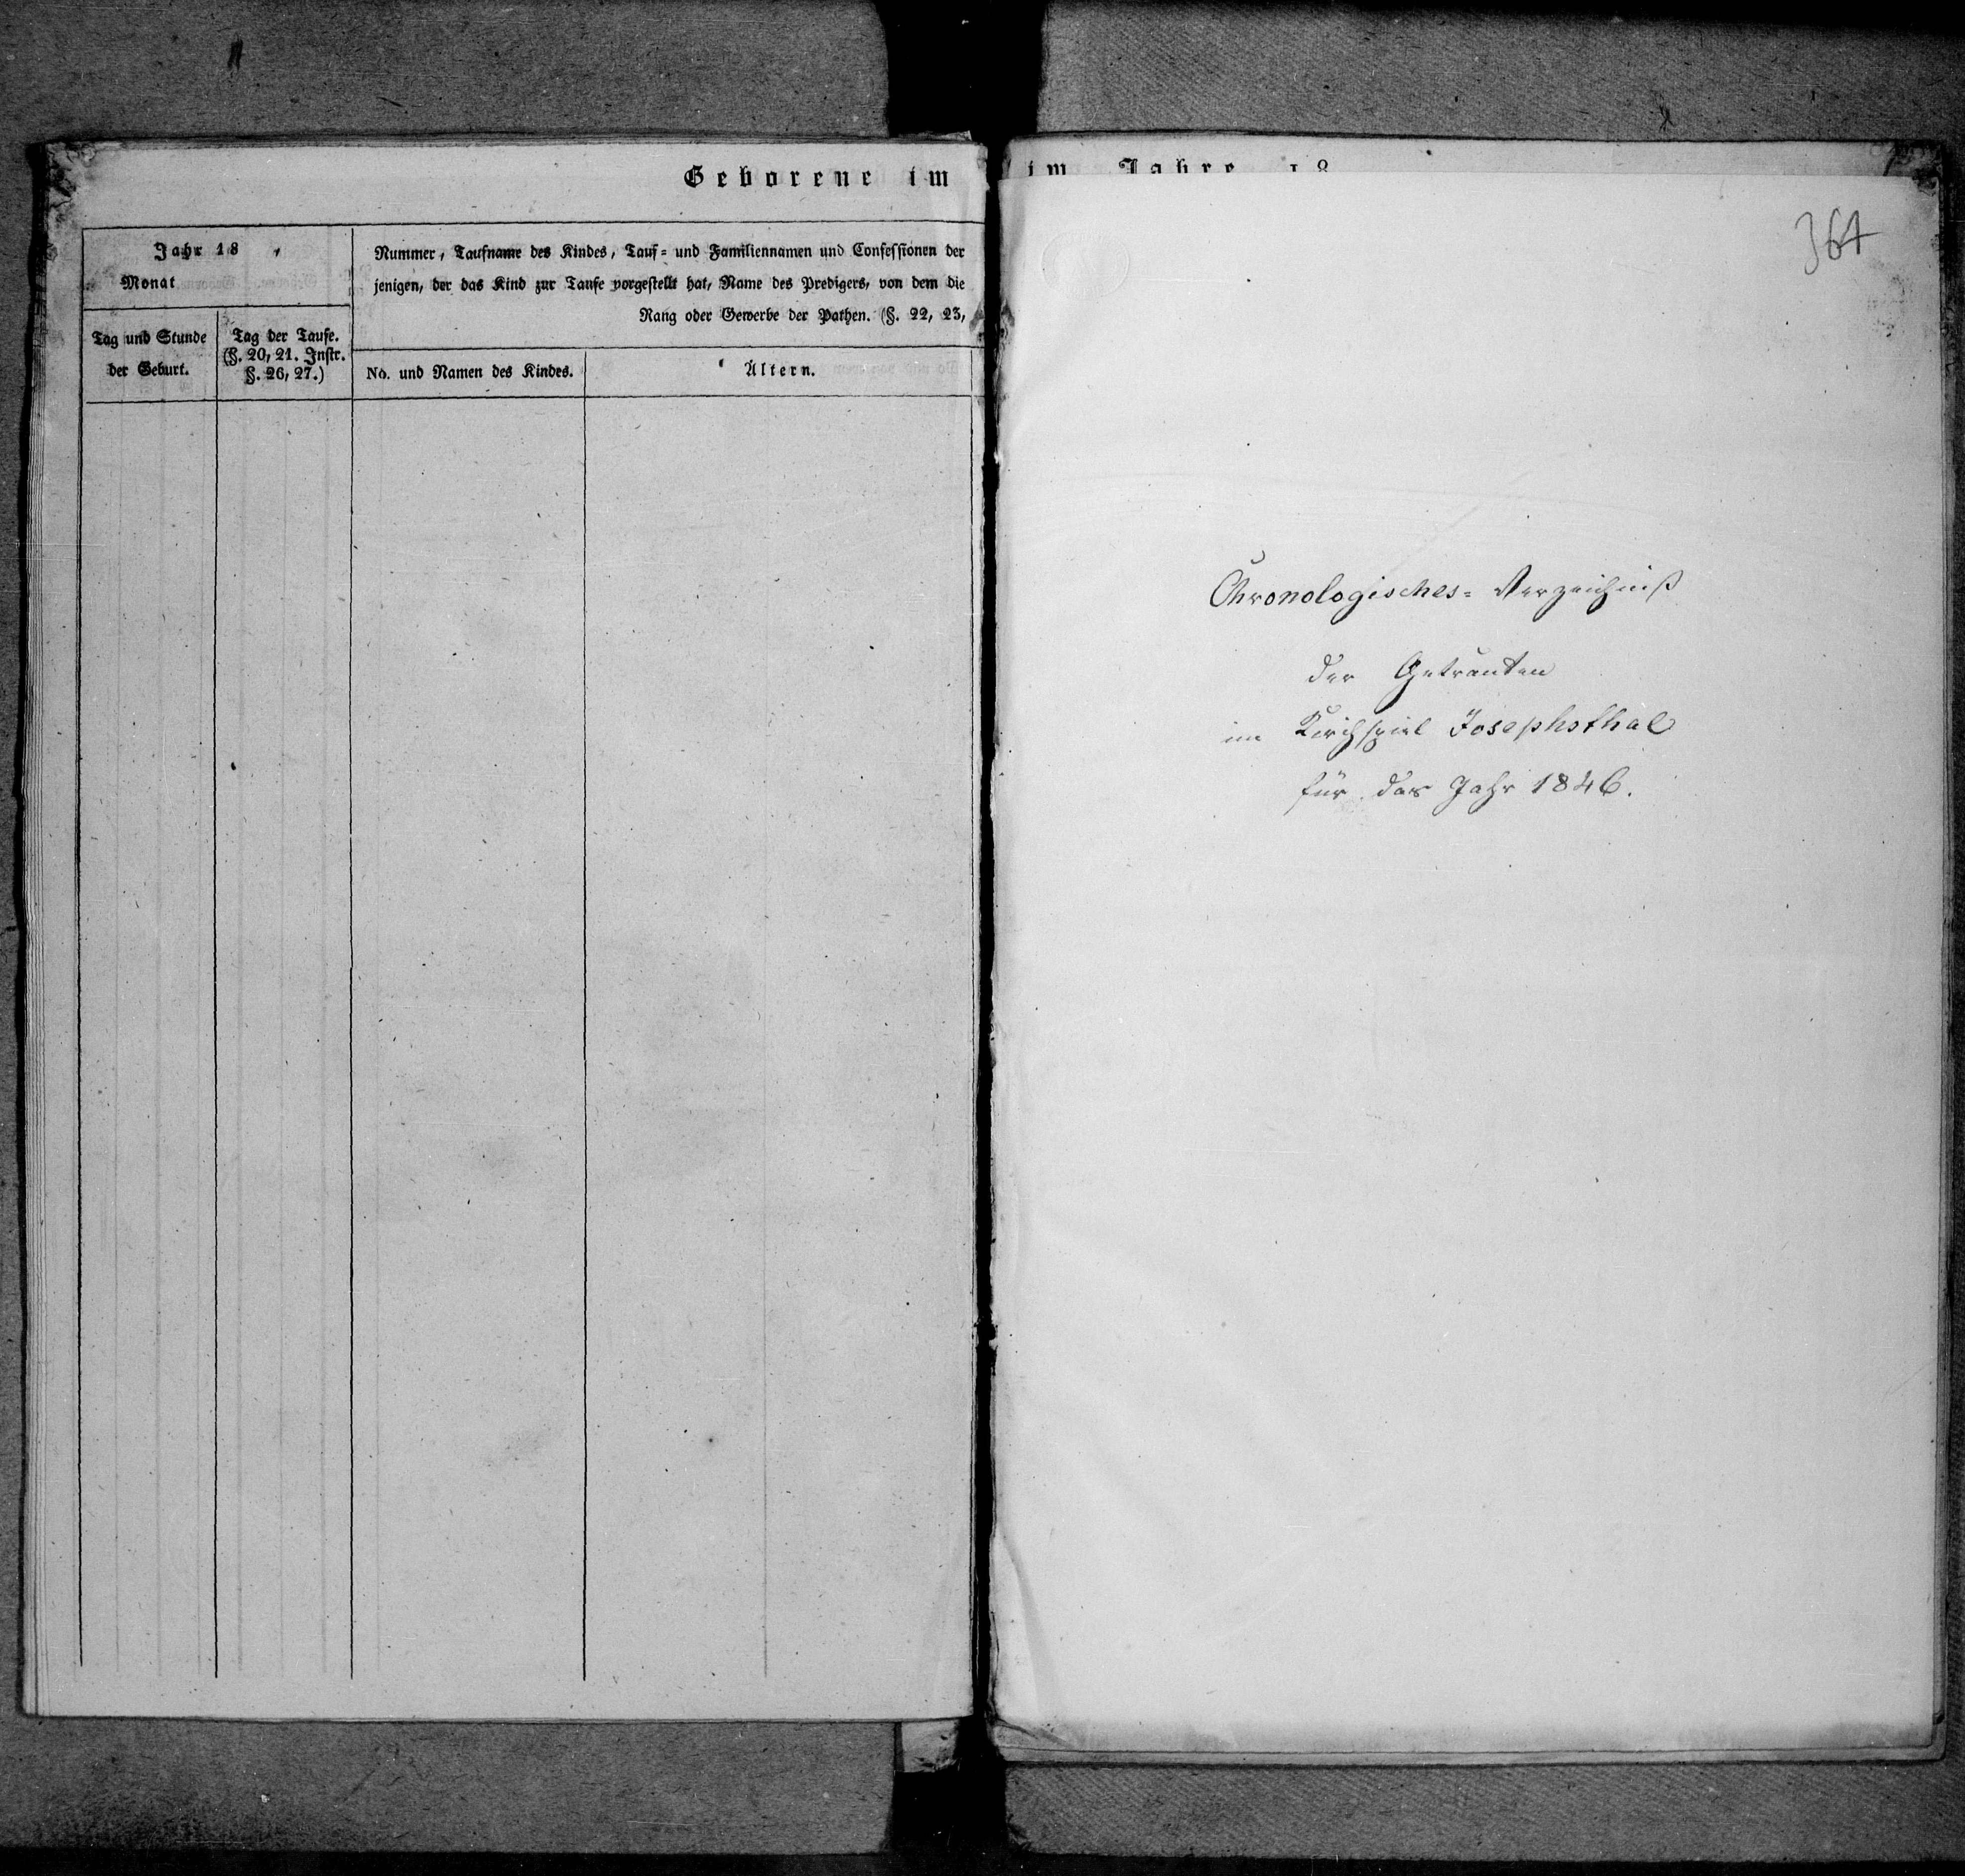 Geborene im
Jahr 18
Monat
Tag und Stunde
der Geburt.
Tag der Taufe.
(§. 20, 21. Instr.
§. 26, 27.)
Nummer, Taufname des Kindes, Tauf= und Familiennamen und Confessionen der
jenigen, der das Kind zur Taufe vorgestellt hat, Name des Predigers, von dem die
Rang oder Gewerbe der Pathen. (§. 22, 23,
No. und Namen des Kindes.
Ältern.
im Jahre 18
364
Chronologisches= Verzeichniß
der Getrauten
im Kirchspiel Josephsthal
für das Jahr 1846.